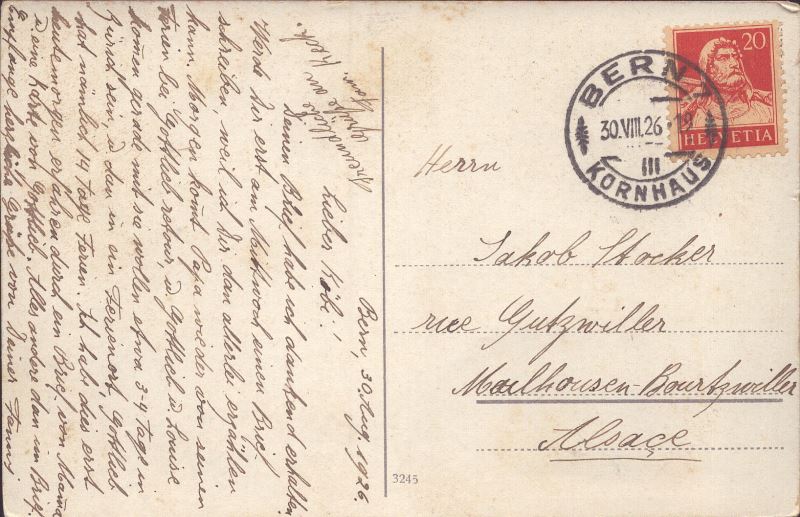 Bern, 30. Aug. 1926.
Lieber Köbi!
Deinen Brief habe ich dankend erhalten
Werde Dir erst am Mittwoch einen Brief
schreiben, weil ich Dir dan allerlei erzählen
kann. Morgen komt Papa wieder von seinen
Ferien bei Gottlieb retour, u Gottlieb u. Louise
komen gerade mit sie wollen etwa 3-4 Tage in
Zürich sein, u dan in ein Ferienort, Gottlieb
hat nämlich 14 Tage Ferien. Ich habe dies erst
heute morgen erfahren durch ein Brief von Mama
u eine Karte von Gottlieb. Alles andere dan im Brief.
Empfange herzliche Grüsse von Deiner Fanny
Freundliche
Grüsse von
20
HELVETIA
BERN 1
30.VIII.26
III
KORNHAUS
Herrn
Jakob Stocker
rue Gutzwiller
Mailhousen-Bourtzwiller
Alsaçe
3245